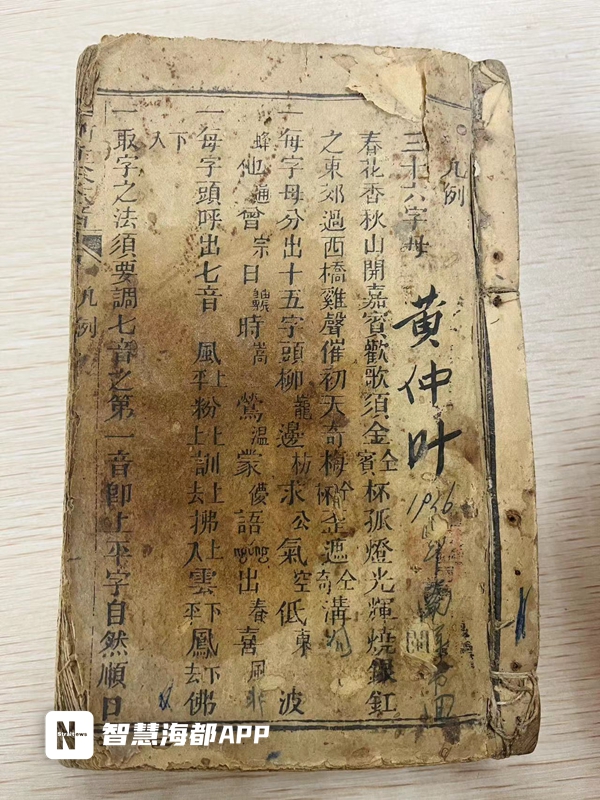 凡例
三十六字母
黄仲叶
1936
春花香秋山開嘉賓歡歌須金仝賓杯孤燈光輝燒銀釭
之東郊過西橋雞聲催初天奇梅歪遮仝奇溝
一每字母分出十五字頭柳籠邊枋求公氣空低東波
蜂他通曾宗日時嵩鶯温蒙語出春喜風非
一每字頭呼出七音風上平粉上訓上去拂上入雲下平鳳下去佛
下入
一取字之法須要調七音之第一音即上平字自然順口
凡例
N
智慧海都APP